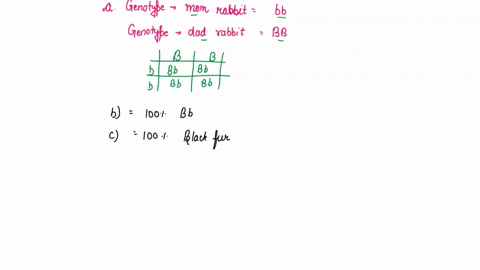 a. Genotype → mom rabbit = bb
Genotype → dad rabbit = BB
B B
b Bb Bb
b Bb Bb
b) = 100% Bb
c) = 100% Black fur